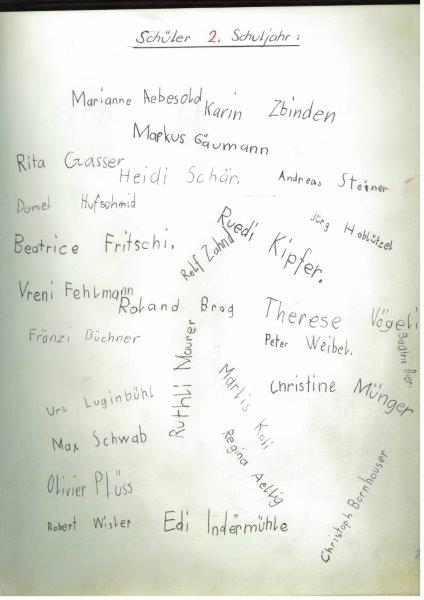 Schüler 2. Schuljahr:
Marianne Aebesold
Karin Zbinden
Markus Gäumann
Rita Gasser
Heidi Schär.
Andreas Steiner
Daniel Hufschmid
Ruedi Kipfer.
Jürg Hablützel
Beatrice Fritschi.
Rolf Zahnd
Vreni Fehlmann
Roland Brog
Therese Vögeli
Fränzi Büchner
Ruthli Maurer
Peter Weibel.
Beatrix Bieri
Marlis Koli
Christine Münger
Urs Luginbühl
Max Schwab
Regina Aellig
Olivier Plüss
Christoph Bornhauser
Robert Wisler
Edi Indermühle